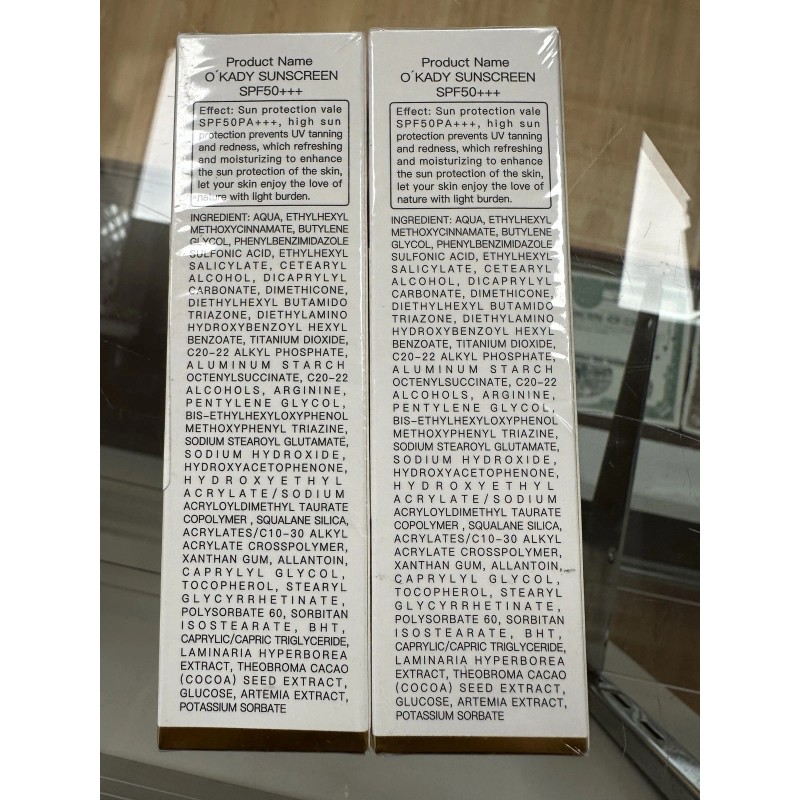 Product Name
O'KADY SUNSCREEN
SPF50+++
Effect: Sun protection vale
SPF50PA+++, high sun
protection prevents UV tanning
and redness, which refreshing
and moisturizing to enhance
the sun protection of the skin,
let your skin enjoy the love of
nature with light burden.
INGREDIENT: AQUA, ETHYLHEXYL
METHOXYCINNAMATE, BUTYLENE
GLYCOL, PHENYLBENZIMIDAZOLE
SULFONIC ACID, ETHYLHEXYL
SALICYLATE, CETEARYL
ALCOHOL, DICAPRYLYL
CARBONATE, DIMETHICONE,
DIETHYLHEXYL BUTAMIDO
TRIAZONE, DIETHYLAMINO
HYDROXYBENZOYL HEXYL
BENZOATE, TITANIUM DIOXIDE,
C20-22 ALKYL PHOSPHATE,
ALUMINUM STARCH
OCTENYLSUCCINATE, C20-22
ALCOHOLS, ARGININE,
PENTYLENE GLYCOL,
BIS-ETHYLHEXYLOXYPHENOL
METHOXYPHENYL TRIAZINE,
SODIUM STEAROYL GLUTAMATE,
SODIUM HYDROXIDE,
HYDROXYACETOPHENONE,
HYDROXYETHYL
ACRYLATE/SODIUM
ACRYLOYLDIMETHYL TAURATE
COPOLYMER , SQUALANE SILICA,
ACRYLATES/C10-30 ALKYL
ACRYLATE CROSSPOLYMER,
XANTHAN GUM, ALLANTOIN,
CAPRYLYL GLYCOL,
TOCOPHEROL, STEARYL
GLYCYRRHETINATE,
POLYSORBATE 60, SORBITAN
ISOSTEARATE, BHT,
CAPRYLIC/CAPRIC TRIGLYCERIDE,
LAMINARIA HYPERBOREA
EXTRACT, THEOBROMA CACAO
(COCOA) SEED EXTRACT,
GLUCOSE, ARTEMIA EXTRACT,
POTASSIUM SORBATE
Product Name
O'KADY SUNSCREEN
SPF50+++
Effect: Sun protection vale
SPF50PA+++, high sun
protection prevents UV tanning
and redness, which refreshing
and moisturizing to enhance
the sun protection of the skin,
let your skin enjoy the love of
nature with light burden.
INGREDIENT: AQUA, ETHYLHEXYL
METHOXYCINNAMATE, BUTYLENE
GLYCOL, PHENYLBENZIMIDAZOLE
SULFONIC ACID, ETHYLHEXYL
SALICYLATE, CETEARYL
ALCOHOL, DICAPRYLYL
CARBONATE, DIMETHICONE,
DIETHYLHEXYL BUTAMIDO
TRIAZONE, DIETHYLAMINO
HYDROXYBENZOYL HEXYL
BENZOATE, TITANIUM DIOXIDE,
C20-22 ALKYL PHOSPHATE,
ALUMINUM STARCH
OCTENYLSUCCINATE, C20-22
ALCOHOLS, ARGININE,
PENTYLENE GLYCOL,
BIS-ETHYLHEXYLOXYPHENOL
METHOXYPHENYL TRIAZINE,
SODIUM STEAROYL GLUTAMATE,
SODIUM HYDROXIDE,
HYDROXYACETOPHENONE,
HYDROXYETHYL
ACRYLATE/SODIUM
ACRYLOYLDIMETHYL TAURATE
COPOLYMER , SQUALANE SILICA,
ACRYLATES/C10-30 ALKYL
ACRYLATE CROSSPOLYMER,
XANTHAN GUM, ALLANTOIN,
CAPRYLYL GLYCOL,
TOCOPHEROL, STEARYL
GLYCYRRHETINATE,
POLYSORBATE 60, SORBITAN
ISOSTEARATE, BHT,
CAPRYLIC/CAPRIC TRIGLYCERIDE,
LAMINARIA HYPERBOREA
EXTRACT, THEOBROMA CACAO
(COCOA) SEED EXTRACT,
GLUCOSE, ARTEMIA EXTRACT,
POTASSIUM SORBATE